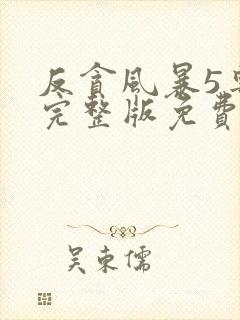 反貪風暴5粵
完整版免費
吴東儒